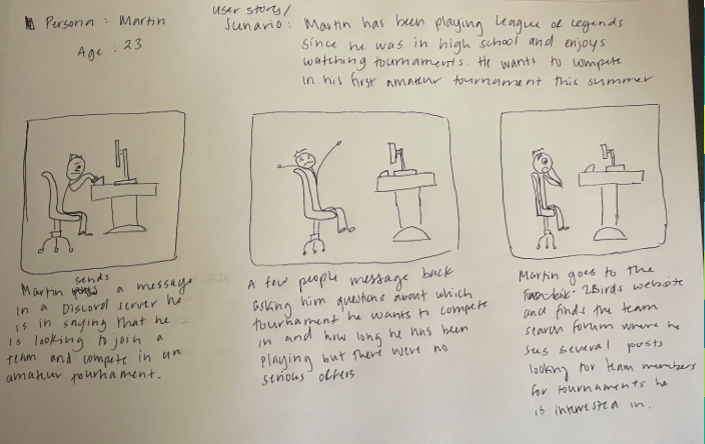 Persona : Martin
Age : 23
user story/
Scenario : Martin has been playing league of legends
since he was in high school and enjoys
watching tournaments. He wants to compete
in his first amateur tournament this summer
Martin sends a message
in a Discord server he
is in saying that he
is looking to join a
team and compete in an
amateur tournament.
A few people message back
asking him questions about which
tournament he wants to compete
in and how long he has been
playing but there were no
serious offers
Martin goes to the
2Birds website
and finds the team
search forum where he
sees several posts
looking for team members
for tournaments he
is interested in.